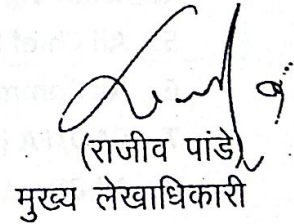 (राजीव पांडे)
मुख्य लेखाधिकारी